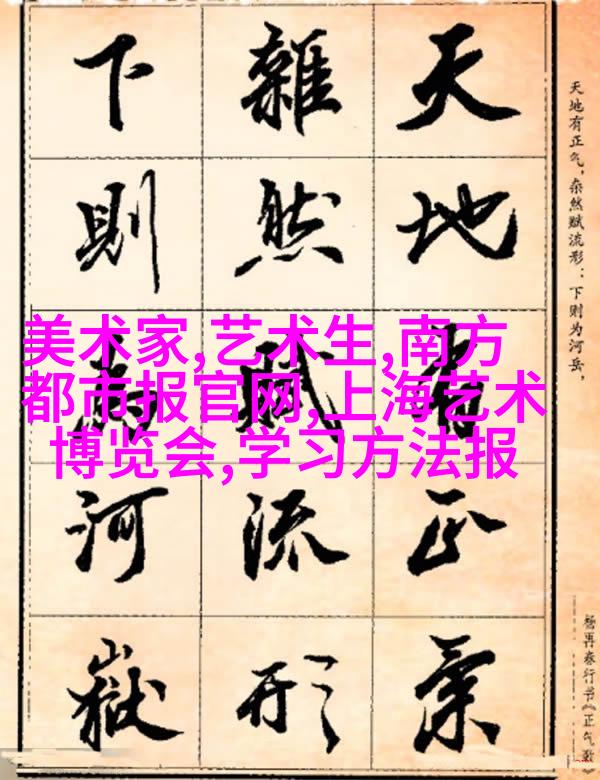 天地有正氣
雜然賦流形
下則為河嶽
天地有正气，杂然赋流形：下则为河岳，
杨再春行书《正气歌》
美术家,艺术生,南方
都市报官网,上海艺术
博览会,学习方法报